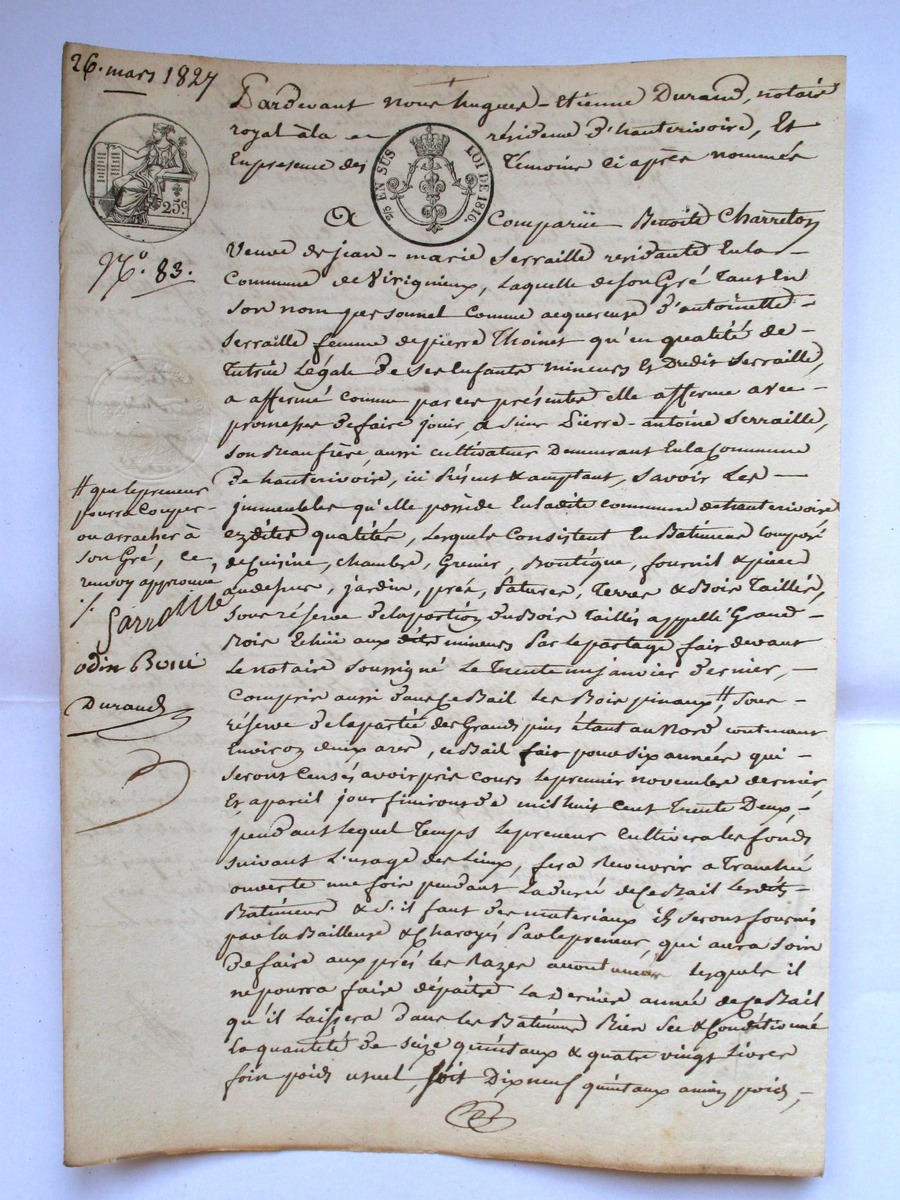 26. mars 1827
Pardevant nous hugues-Etienne Durand, notaire
royal à la résidence d'hauterivoire, Et
En presence des Témoins ci après nommés
25c.
9/10 EN SUS LOI DE 1816.
A Comparüe Benoite Charreton
N.o 83.
Veuve de jean-marie Serraille residante En la
Commune de Virigneux, laquelle de son Gré Tant En
Son nom personnel Comme acquereuse d'antoinette
Serraille femme de pierre Thoinet qu'en qualité de
Tutrice Légale de Ses Enfants mineurs Et Dudit Serraille,
a affermé comme par ces présentes elle afferme avec
promesse de faire jouir, à Sieur Pierre-antoine Serraille,
Son Beaufrère, aussi cultivateur Demeurant En la Commune
d'hauterivoire, ici Présent & acceptant, Savoir Les
immeubles qu'elle possède En ladite commune d'hauterivoire
ezdites qualités, Lesquels Consistent En Batiment Composé
de Cuisine, chambre, Grenier, Boutique, fournil & piece
au dessus, jardin, prés, Patures, Terres & Bois Taillés,
Sous réserve de la portion Du Bois Taillés appellé Grand
Bois Echüe aux dits mineurs Par le partage fait devant
Le notaire Soussigné Le Trente un janvier dernier,
Compris aussi dans Ce Bail Les Bois pinaux, # Sous
réserve de la partie des Grands pins étant au Nord contenant
Environ deux ares, ce Bail fait pour six années qui
Seront Censés avoir pris cours Le premier novembre dernier
Et a pareil jour finiront de mil huit cent Trente Deux,
pendant lequel Temps Le preneur Cultivera les fonds
Suivant L'usage des Lieux, fera recouvrir a Tranchée
ouverte une fois pendant La durée de Ce Bail Lesdits
Batiments & S'il faut des materiaux ils Seront fournis
par la Bailleuse & Charoyés Par le preneur, qui aura Soin
de faire aux prés les Razes lesquels il
ne pourra faire dépaitre La Derniere année de Ce Bail
qu'il Laissera dans les Batiments Bien Sec & Conditionné
La quantité de Seize quintaux & quatre vingt Livres
foin poids usuel, Soit Dix neuf quintaux ancien poids,
# que le preneur
pourra Couper
ou arracher à
Son Gré, Ce
renvoy approuvé
Sarraille
odin
Durand